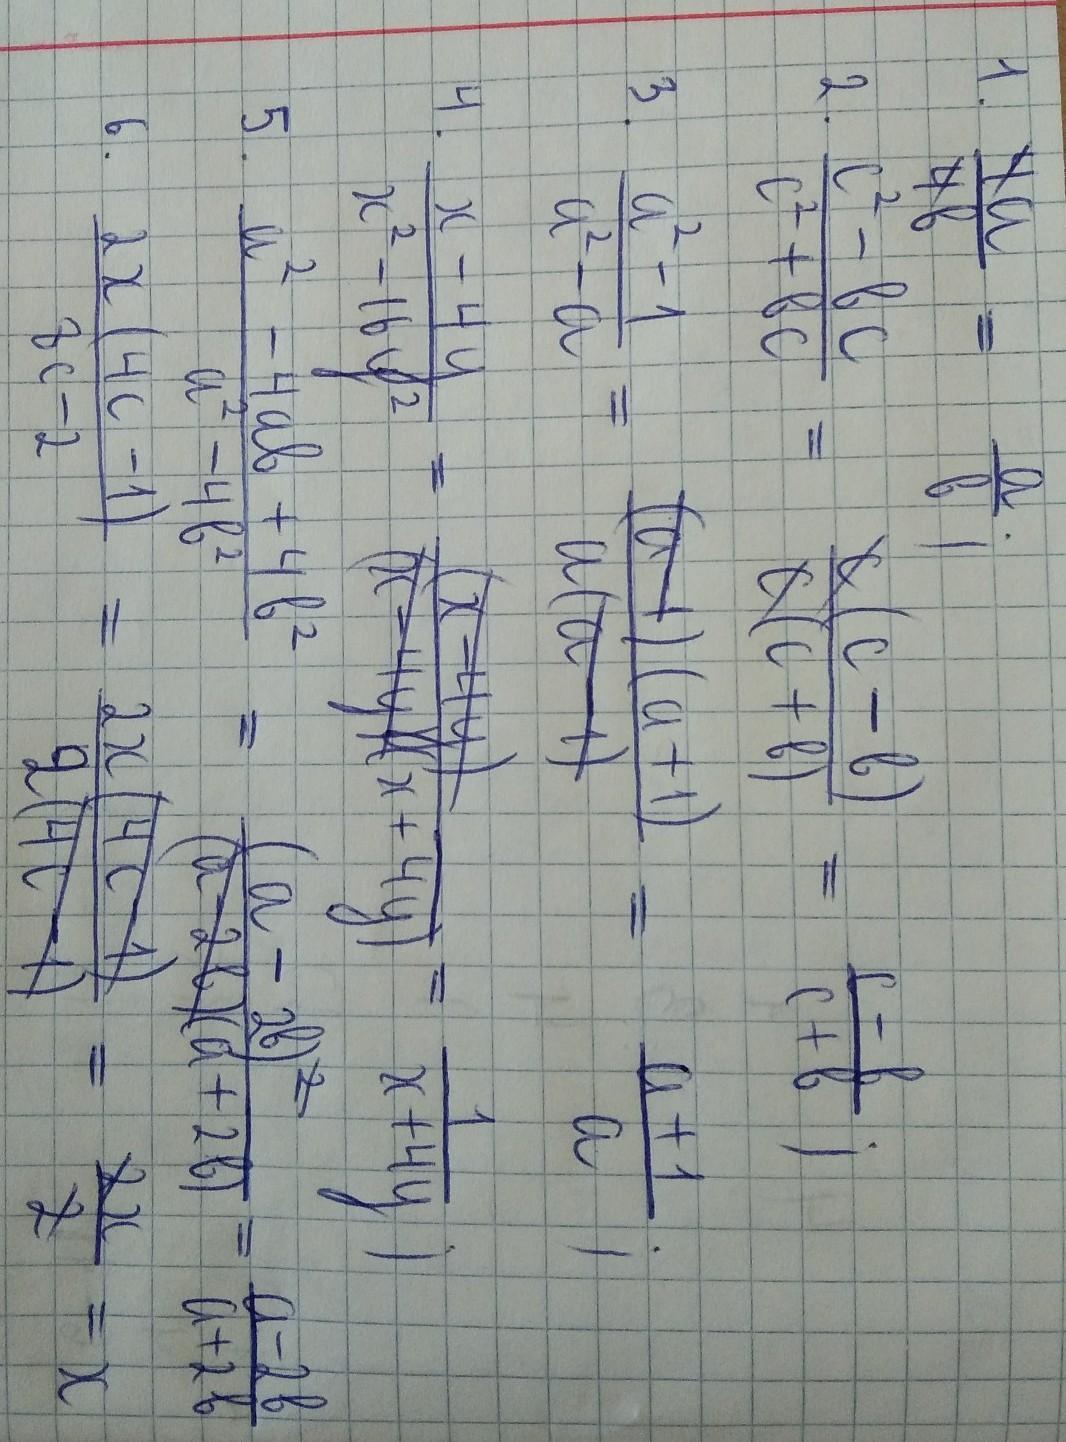 1. 4a/4b = a/b;
2. c² - bc / c² + bc = c(c - b) / c(c + b) = c - b / c + b;
3. a² - 1 / a² - a = (a - 1)(a + 1) / a(a - 1) = a + 1 / a;
4. x - 4y / x² - 16y² = (x - 4y) / (x - 4y)(x + 4y) = 1 / x + 4y;
5. a² - 4ab + 4b² / a² - 4b² = (a - 2b)² / (a - 2b)(a + 2b) = a - 2b / a + 2b
6. 2x(4c - 1) / 8c - 2 = 2x(4c - 1) / 2(4c - 1) = 2x / 2 = x